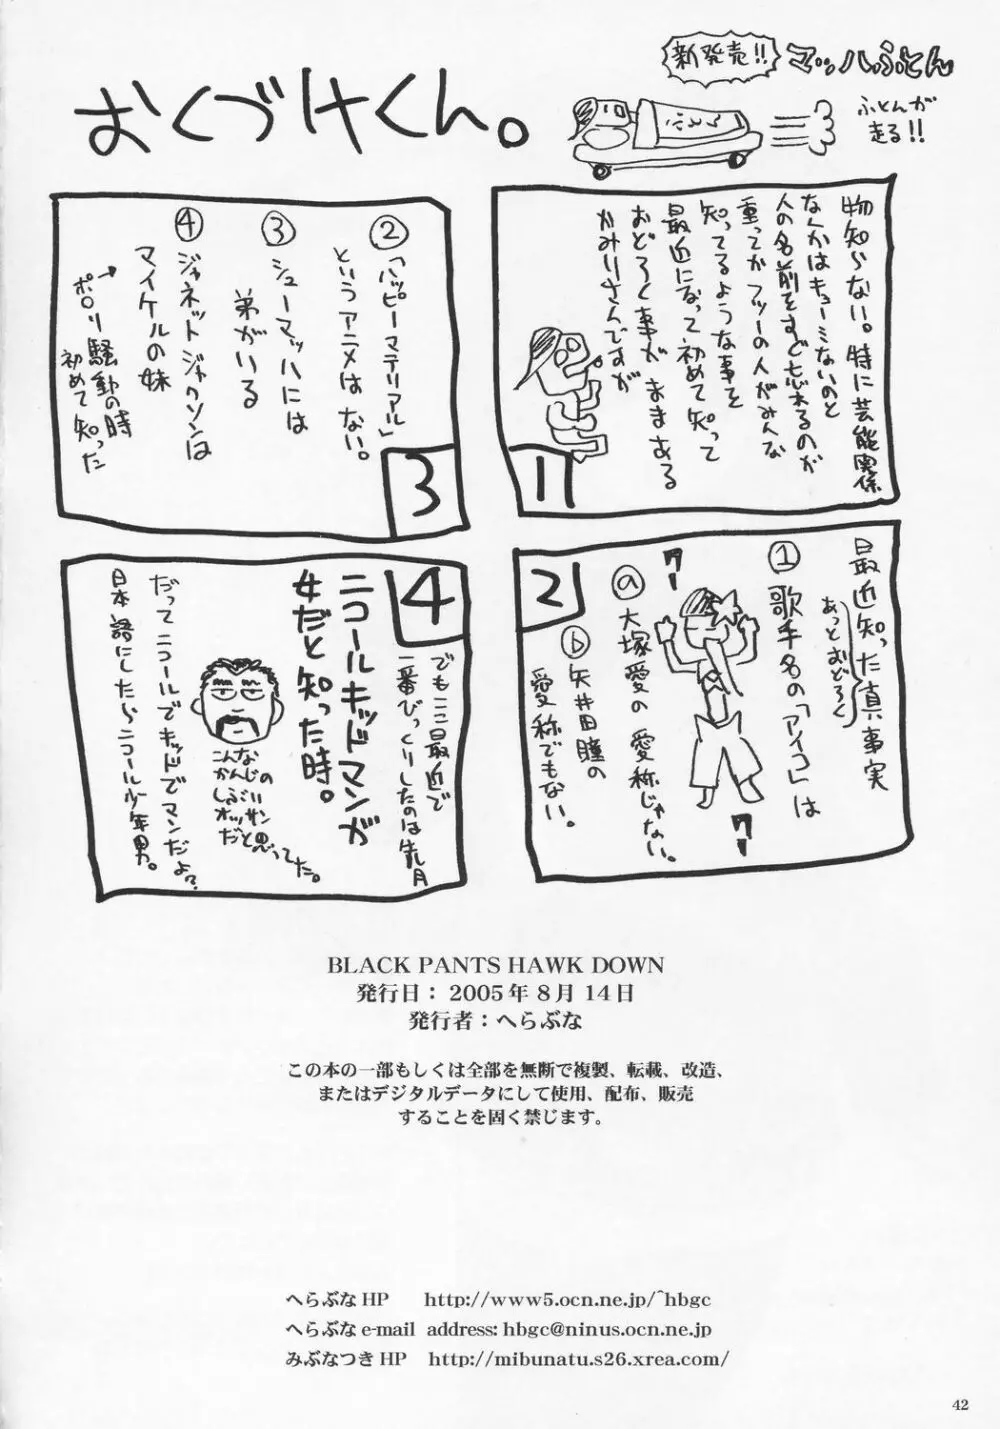 おくづけくん。
新発売!!
マッハふとん
ふとんが
走る!!
ふとん
物知らない。特に芸能関係
なんかはキョーミないのと
人の名前をすぐ忘れるのが
重ってかフツーの人がみんな
知ってるような事を
最近になって初めて知って
おどろく事がままある
かみりさんですが
1
最近知った真事実
あっとおどろく
①歌手名の「アイコ」は
ⓐ大塚愛の愛称じゃない。
ⓑ矢井田瞳の
愛称でもない。
クー
クー
2
②「ハッピーマテリアル」
というアニメはない。
③シューマッハには
弟がいる
④ジャネットジャクソンは
マイケルの妹
→ポロリ騒動の時
初めて知った
3
でもここ最近で
一番びっくりしたのは先月
ニコールキッドマンが
女だと知った時。
こんな
かんじの
しぶい
オッサン
だと思ってた。
だってニコールでキッドでマンだよ?
日本語にしたらニコール少年男。
4
BLACK PANTS HAWK DOWN
発行日：2005年8月14日
発行者：へらぶな
この本の一部もしくは全部を無断で複製、転載、改造、
またはデジタルデータにして使用、配布、販売
することを固く禁じます。
へらぶなHP http://www5.ocn.ne.jp/~hbgc
へらぶなe-mail address: hbgc@ninus.ocn.ne.jp
みぶなつきHP http://mibunatu.s26.xrea.com/
42